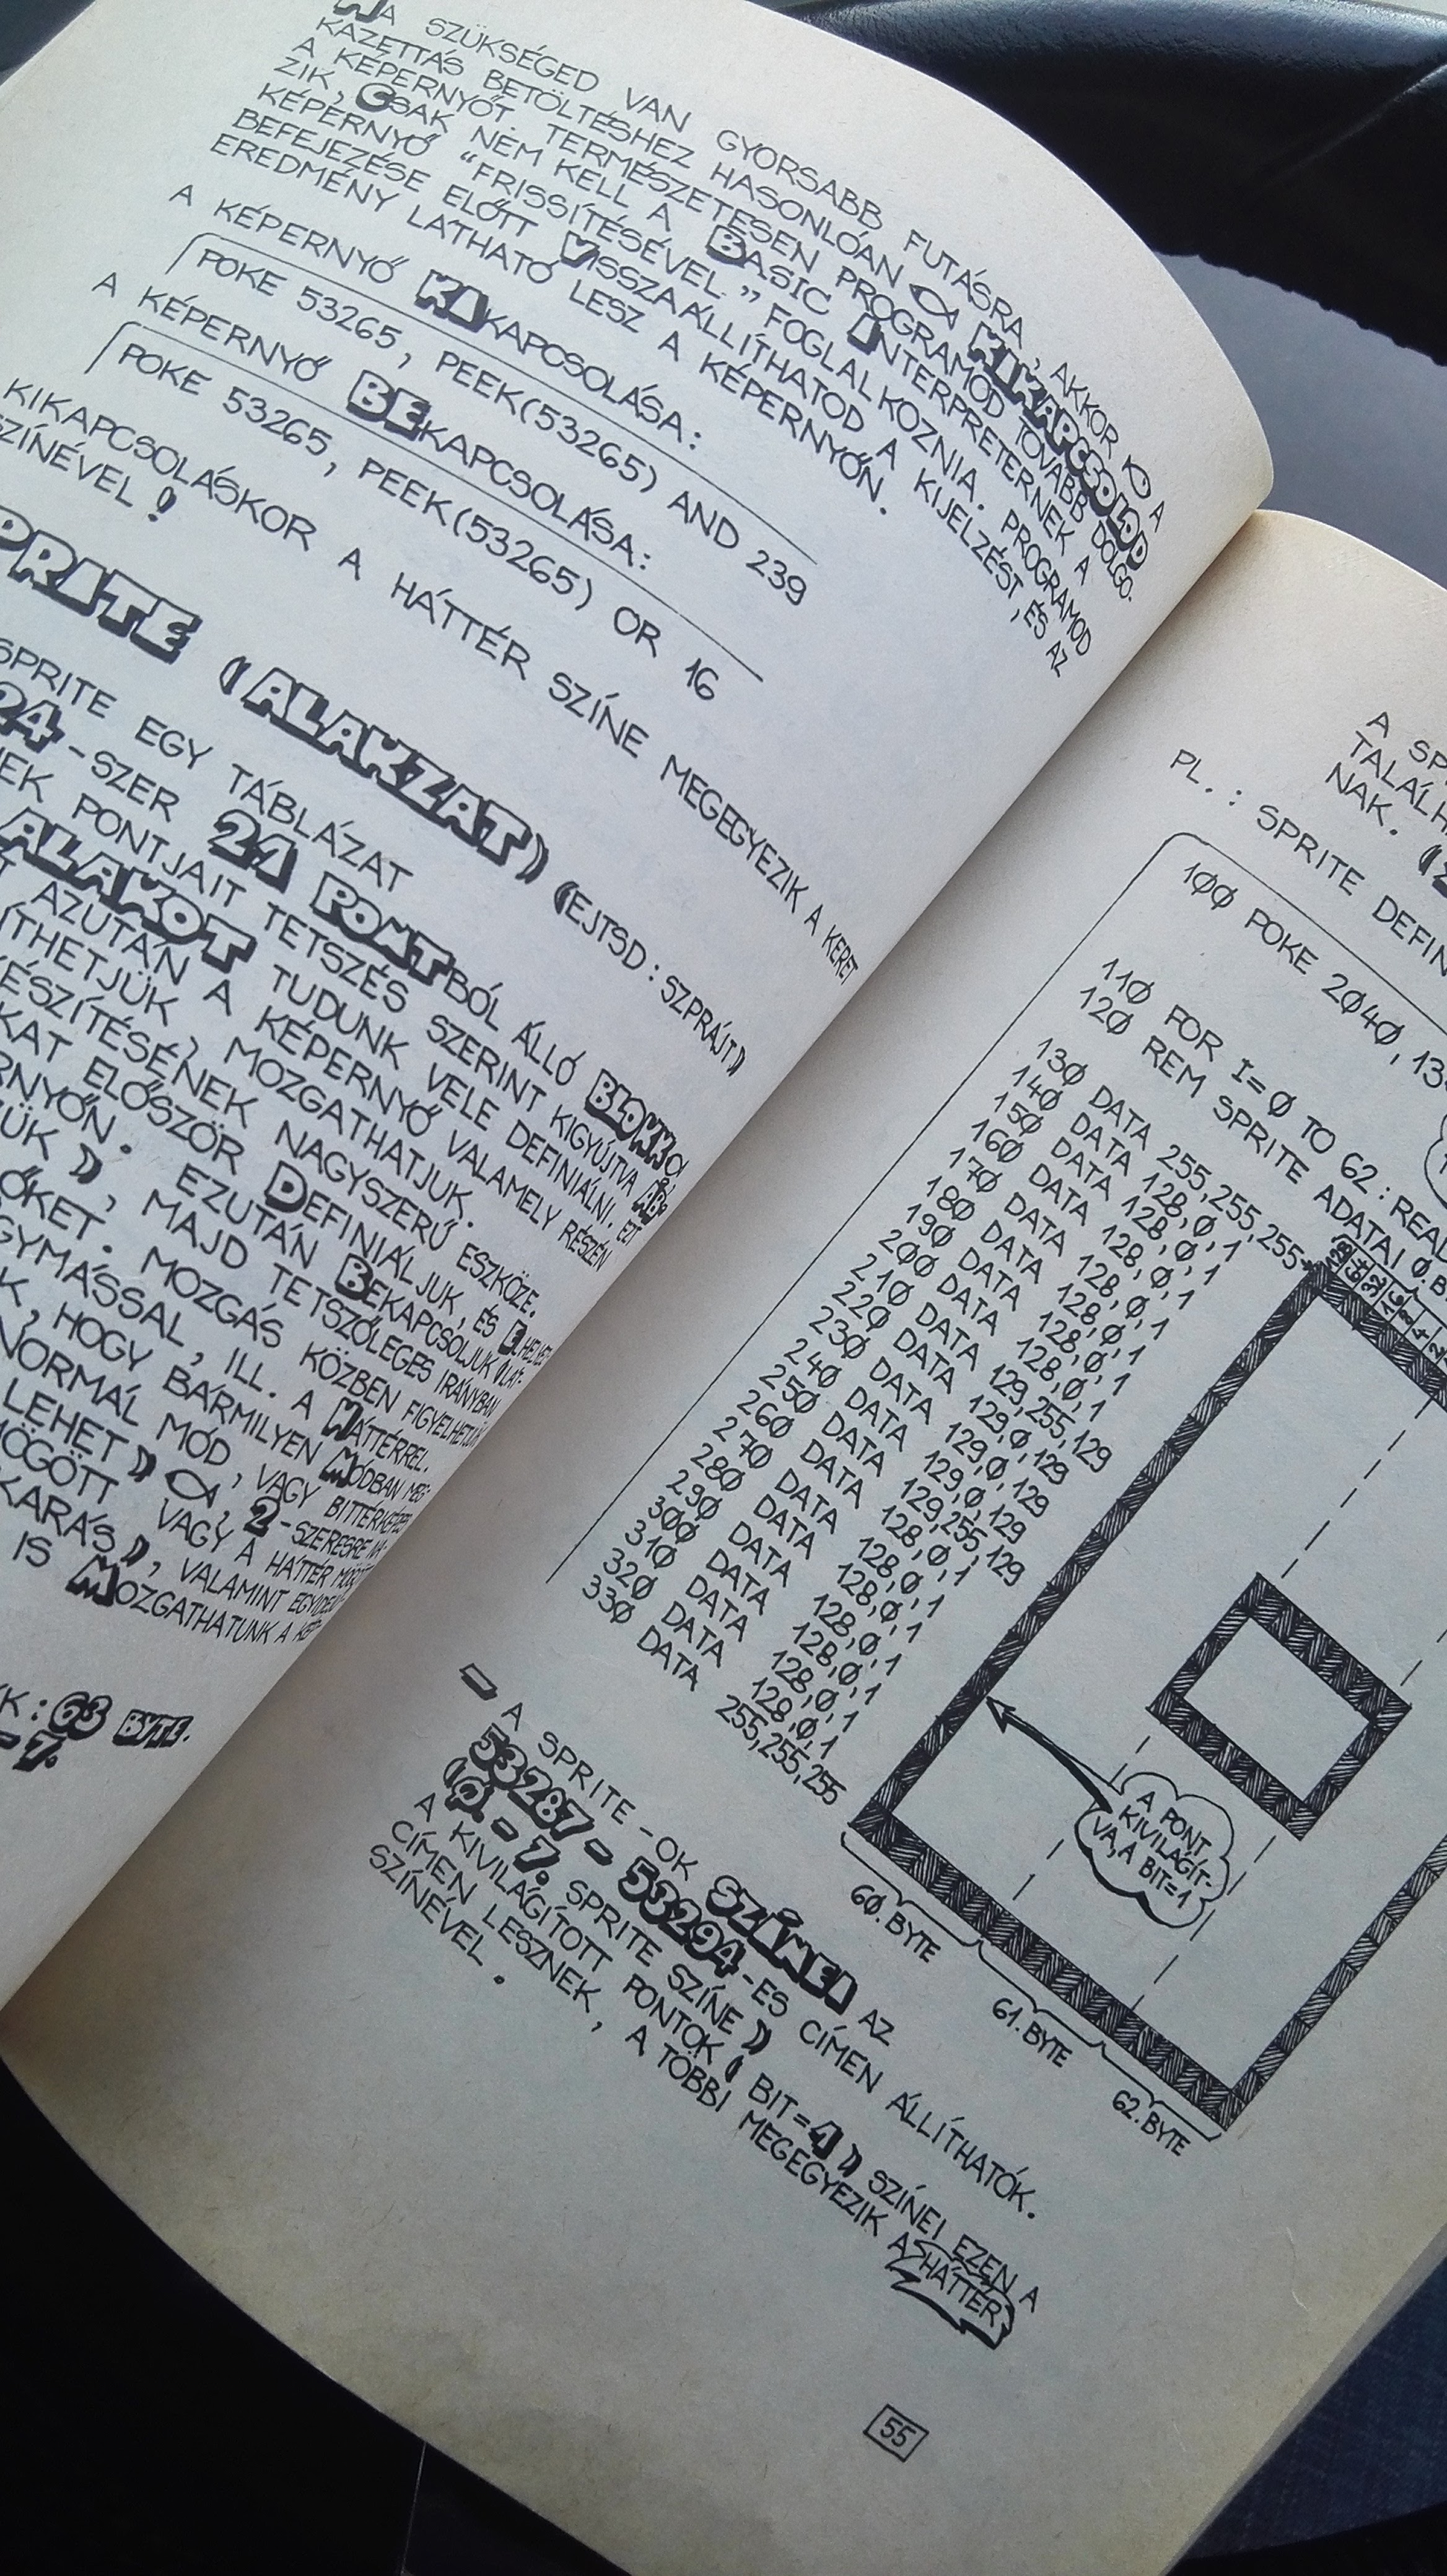 HA SZÜKSÉGED VAN GYORSABB FUTÁSRA, AKKOR A
KAZETTÁS BETÖLTÉSHEZ HASONLÓAN KIKAPCSOLOD
A KÉPERNYŐT. TERMÉSZETESEN PROGRAMOD TOVÁBB DOLGO-
ZIK, CSAK NEM KELL A BASIC INTERPRETERNEK A
KÉPERNYŐ "FRISSÍTÉSÉVEL" FOGLALKOZNIA. PROGRAMOD
BEFEJEZÉSE ELŐTT VISSZAÁLLÍTHATOD A KIJELZÉST, ÉS AZ
EREDMÉNY LÁTHATÓ LESZ A KÉPERNYŐN.
A KÉPERNYŐ KIKAPCSOLÁSA:
POKE 53265, PEEK(53265) AND 239
A KÉPERNYŐ BEKAPCSOLÁSA:
POKE 53265, PEEK(53265) OR 16
KIKAPCSOLÁSKOR A HÁTTÉR SZÍNE MEGEGYEZIK A KERET
SZÍNÉVEL!
PRITE (ALAKZAT) (EJTSD: SZPRÁJT)
SPRITE EGY TÁBLÁZAT
24-SZER 21 PONTBÓL ÁLLÓ BLOKK
EK PONTJAIT TETSZÉS SZERINT KIGYÚJTVA
ALAKOT TUDUNK VELE DEFINIÁLNI. EZT
T AZUTÁN A KÉPERNYŐ VALAMELY RÉSZÉN
ÍTHETJÜK, MOZGATHATJUK.
ÉSZÍTÉSÉNEK NAGYSZERŰ ESZKÖZE.
KAT ELŐSZÖR DEFINIÁLJUK, ÉS
RNYŐN. EZUTÁN BEKAPCSOLJUK (LÁT-
ÜK), MAJD TETSZŐLEGES IRÁNYBAN
ŐKET. MOZGÁS KÖZBEN FIGYELHETJÜK
GYMÁSSAL, ILL. A HÁTTÉRREL.
K, HOGY BÁRMILYEN MÓDBAN MEG-
NORMÁL MÓD, VAGY BITTÉRKÉPES
LEHET), 2-SZERESRE NA-
MÖGÖTT VAGY A HÁTTÉR MÖGÖ
KARÁS), VALAMINT EGYIDEJŰ
IS MOZGATHATUNK A KÉP
K: 63 BYTE.
- 7.
A SP
TALÁLH
NAK.
PL.: SPRITE DEFIN
100 POKE 2040, 13
110 FOR I=0 TO 62: READ
120 REM SPRITE ADATAI 0.B
130 DATA 255,255,255
140 DATA 128,0,1
150 DATA 128,0,1
160 DATA 128,0,1
170 DATA 128,0,1
180 DATA 128,0,1
190 DATA 128,0,1
200 DATA 129,255,129
210 DATA 129,0,129
220 DATA 129,0,129
230 DATA 129,0,129
240 DATA 129,255,129
250 DATA 128,0,1
260 DATA 128,0,1
270 DATA 128,0,1
280 DATA 128,0,1
290 DATA 128,0,1
300 DATA 128,0,1
310 DATA 128,0,1
320 DATA 128,0,1
330 DATA 255,255,255
A PONT
KIVILÁGÍT-
VA, A BIT=1
60.BYTE
61.BYTE
62.BYTE
- A SPRITE-OK SZÍNEI AZ
53287 - 53294-ES CÍMEN ÁLLÍTHATÓK.
(0. - 7. SPRITE SZÍNE)
A KIVILÁGÍTOTT PONTOK (BIT=1) SZÍNEI EZEN A
CÍMEN LESZNEK, A TÖBBI MEGEGYEZIK A HÁTTÉR
SZÍNÉVEL.
55